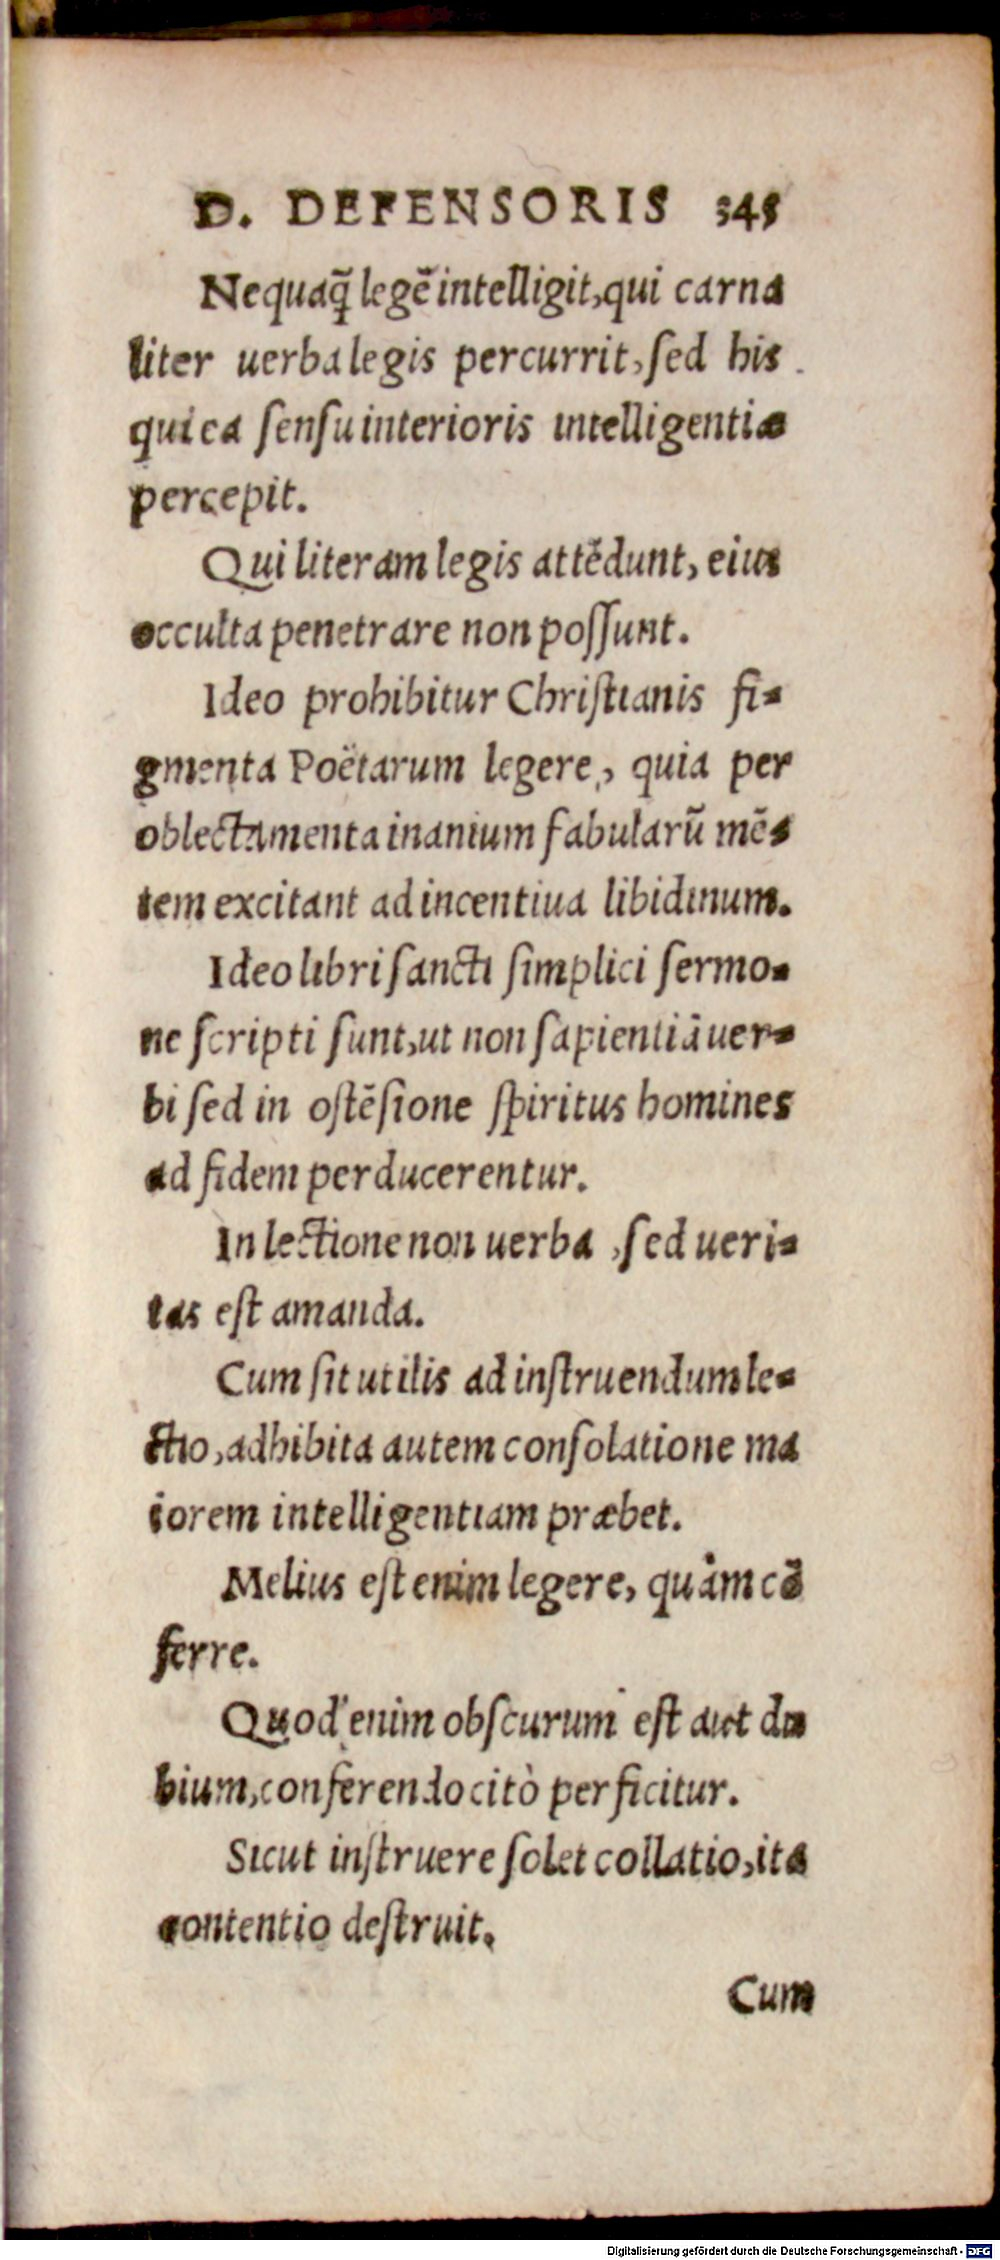 D. DEFENSORIS 345
Nequaq̃ legē intelligit, qui carna
liter uerba legis percurrit, ſed his
qui ea ſenſu interioris intelligentiæ
percepit.
Qui literam legis attēdunt, eius
occulta penetrare non poſſunt.
Ideo prohibitur Chriſtianis fi-
gmenta Poëtarum legere, quia per
oblectamenta inanium fabularũ mē-
tem excitant ad incentiua libidinum.
Ideo libri ſancti ſimplici ſermo-
ne ſcripti ſunt, ut non ſapientiā uer-
bi ſed in oſtēſione ſpiritus homines
ad fidem perducerentur.
In lectione non uerba, ſed ueri-
tas eſt amanda.
Cum ſit utilis ad inſtruendum le-
ctio, adhibita autem conſolatione ma
iorem intelligentiam præbet.
Melius eſt enim legere, quàm cō
ferre.
Quod enim obſcurum eſt aut du
bium, conferendo citò perficitur.
Sicut inſtruere ſolet collatio, ita
contentio deſtruit.
Cum
Digitalisierung gefördert durch die Deutsche Forschungsgemeinschaft - DFG